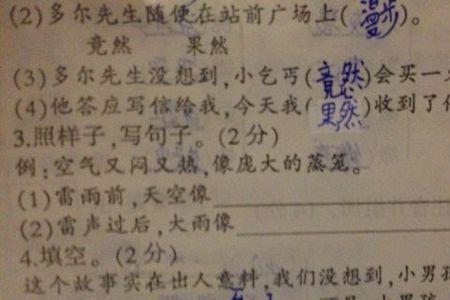 (2)多尔先生随便在站前广场上(漫步)。
竟然 果然
(3)多尔先生没想到,小乞丐(竟然)会买一
(4)他答应写信给我,今天我(果然)收到了
3.照样子,写句子。(2分)
例:空气又闷又热,像庞大的蒸笼。
(1)雷雨前,天空像
(2)雷声过后,大雨像
4.填空。(2分)
这个故事实在出人意料,我们没想到,小男孩